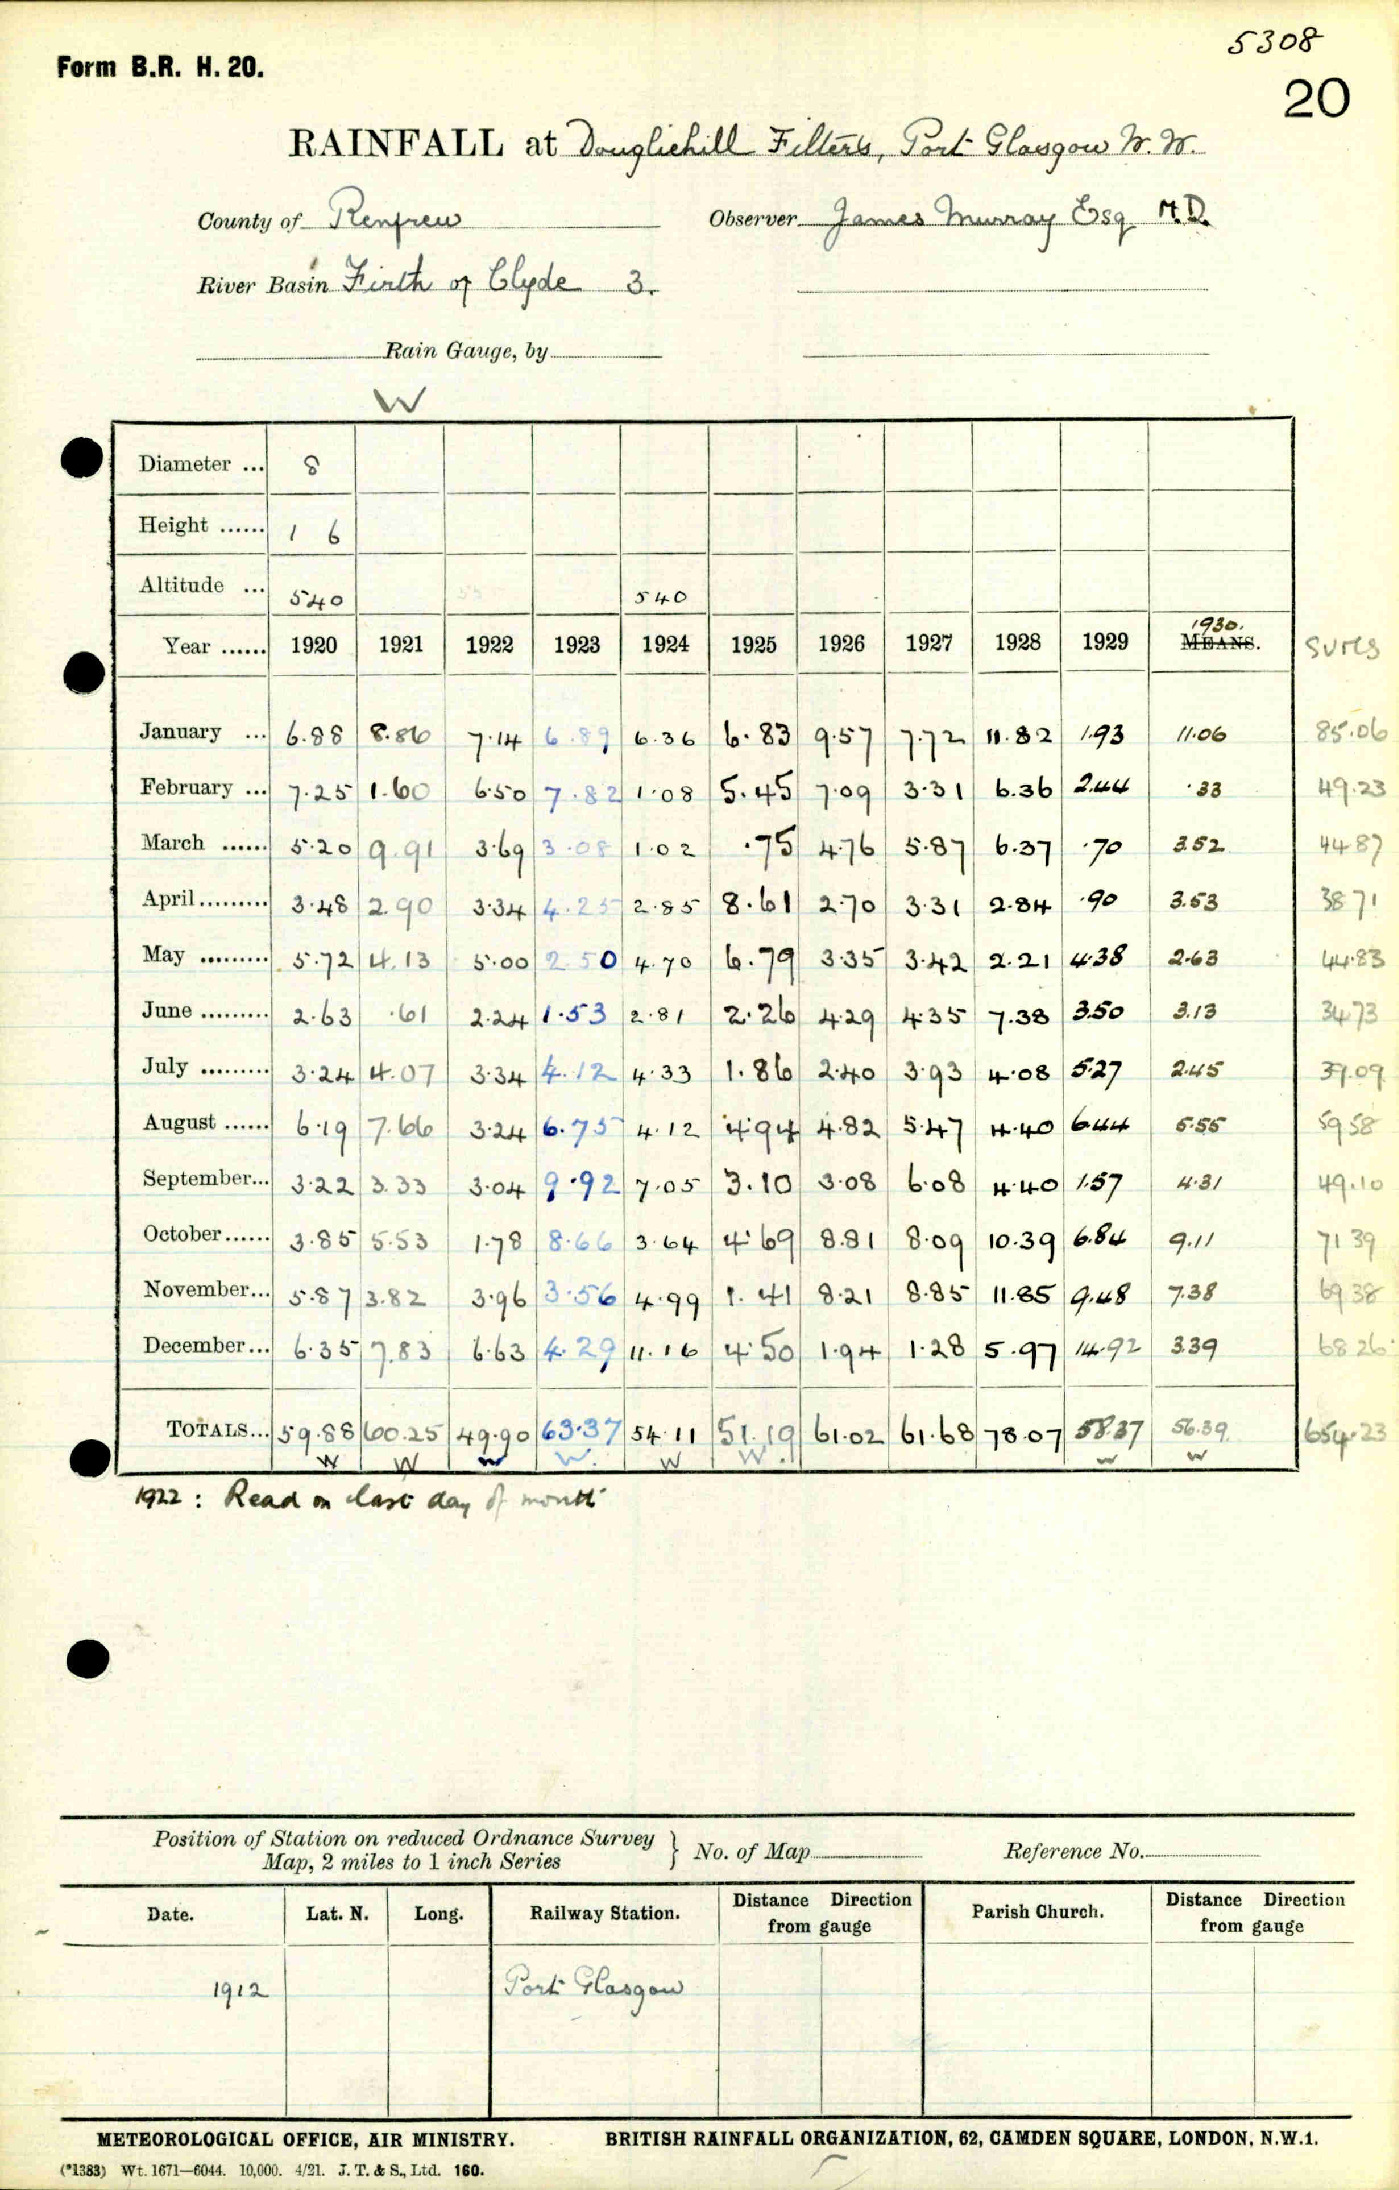 5308
Form B.R. H. 20.
20
RAINFALL at Dougliehill Filters, Port Glasgow W.W.
County of Renfrew Observer James Murray Esq M.D.
River Basin Firth of Clyde 3.
Rain Gauge, by
W
Diameter ... 8
Height ...... 1 6
Altitude ... 540 540
Year ...... 1920 1921 1922 1923 1924 1925 1926 1927 1928 1929 1930. MEANS. SUMS
January ... 6.88 8.86 7.14 6.89 6.36 6.83 9.57 7.72 11.82 1.93 11.06 85.06
February ... 7.25 1.60 6.50 7.82 1.08 5.45 7.09 3.31 6.36 2.44 .33 49.23
March ...... 5.20 9.91 3.69 3.08 1.02 .75 4.76 5.87 6.37 .70 3.52 44.87
April ......... 3.48 2.90 3.34 4.25 2.85 8.61 2.70 3.31 2.84 .90 3.53 38.71
May ......... 5.72 4.13 5.00 2.50 4.70 6.79 3.35 3.42 2.21 4.38 2.63 44.83
June ......... 2.63 .61 2.24 1.53 2.81 2.26 4.29 4.35 7.38 3.50 3.13 34.73
July ......... 3.24 4.07 3.34 4.12 4.33 1.86 2.40 3.93 4.08 5.27 2.45 39.09
August ...... 6.19 7.66 3.24 6.75 4.12 4.94 4.82 5.47 4.40 6.44 5.55 59.58
September... 3.22 3.33 3.04 9.92 7.05 3.10 3.08 6.08 4.40 1.57 4.31 49.10
October ...... 3.85 5.53 1.78 8.66 3.64 4.69 8.81 8.09 10.39 6.84 9.11 71.39
November... 5.87 3.82 3.96 3.56 4.99 1.41 8.21 8.85 11.85 9.48 7.38 69.38
December... 6.35 7.83 6.63 4.29 11.16 4.50 1.94 1.28 5.97 14.92 3.39 68.26
TOTALS... 59.88 60.25 49.90 63.37 54.11 51.19 61.02 61.68 78.07 58.37 56.39 654.23
W W W W. W W. W W
1922 : Read on last day of month
Position of Station on reduced Ordnance Survey Map, 2 miles to 1 inch Series } No. of Map Reference No.
Date. Lat. N. Long. Railway Station. Distance Direction from gauge Parish Church. Distance Direction from gauge
1912 Port Glasgow
METEOROLOGICAL OFFICE, AIR MINISTRY. BRITISH RAINFALL ORGANIZATION, 62, CAMDEN SQUARE, LONDON, N.W.1.
(*1383) Wt. 1671—6044. 10,000. 4/21. J. T. & S., Ltd. 160.